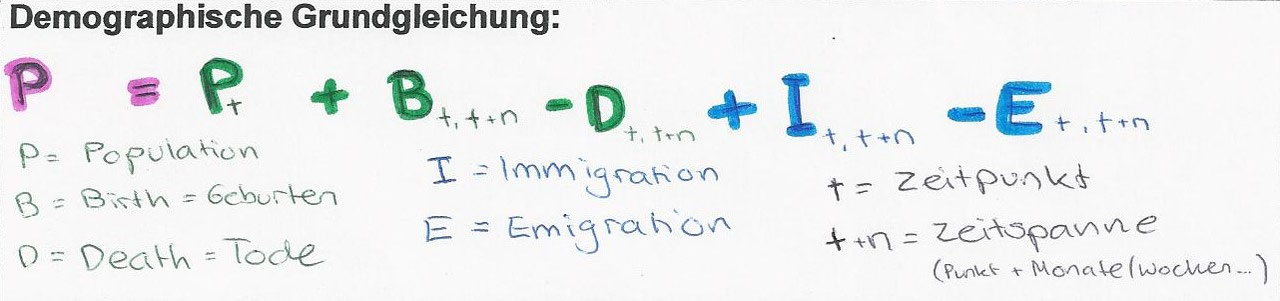 Demographische Grundgleichung:
P = Pt + Bt, t+n - Dt, t+n + It, t+n - Et, t+n
P = Population
B = Birth = Geburten
D = Death = Tode
I = Immigration
E = Emigration
t = Zeitpunkt
t+n = Zeitspanne
(Punkt + Monate/Wochen...)